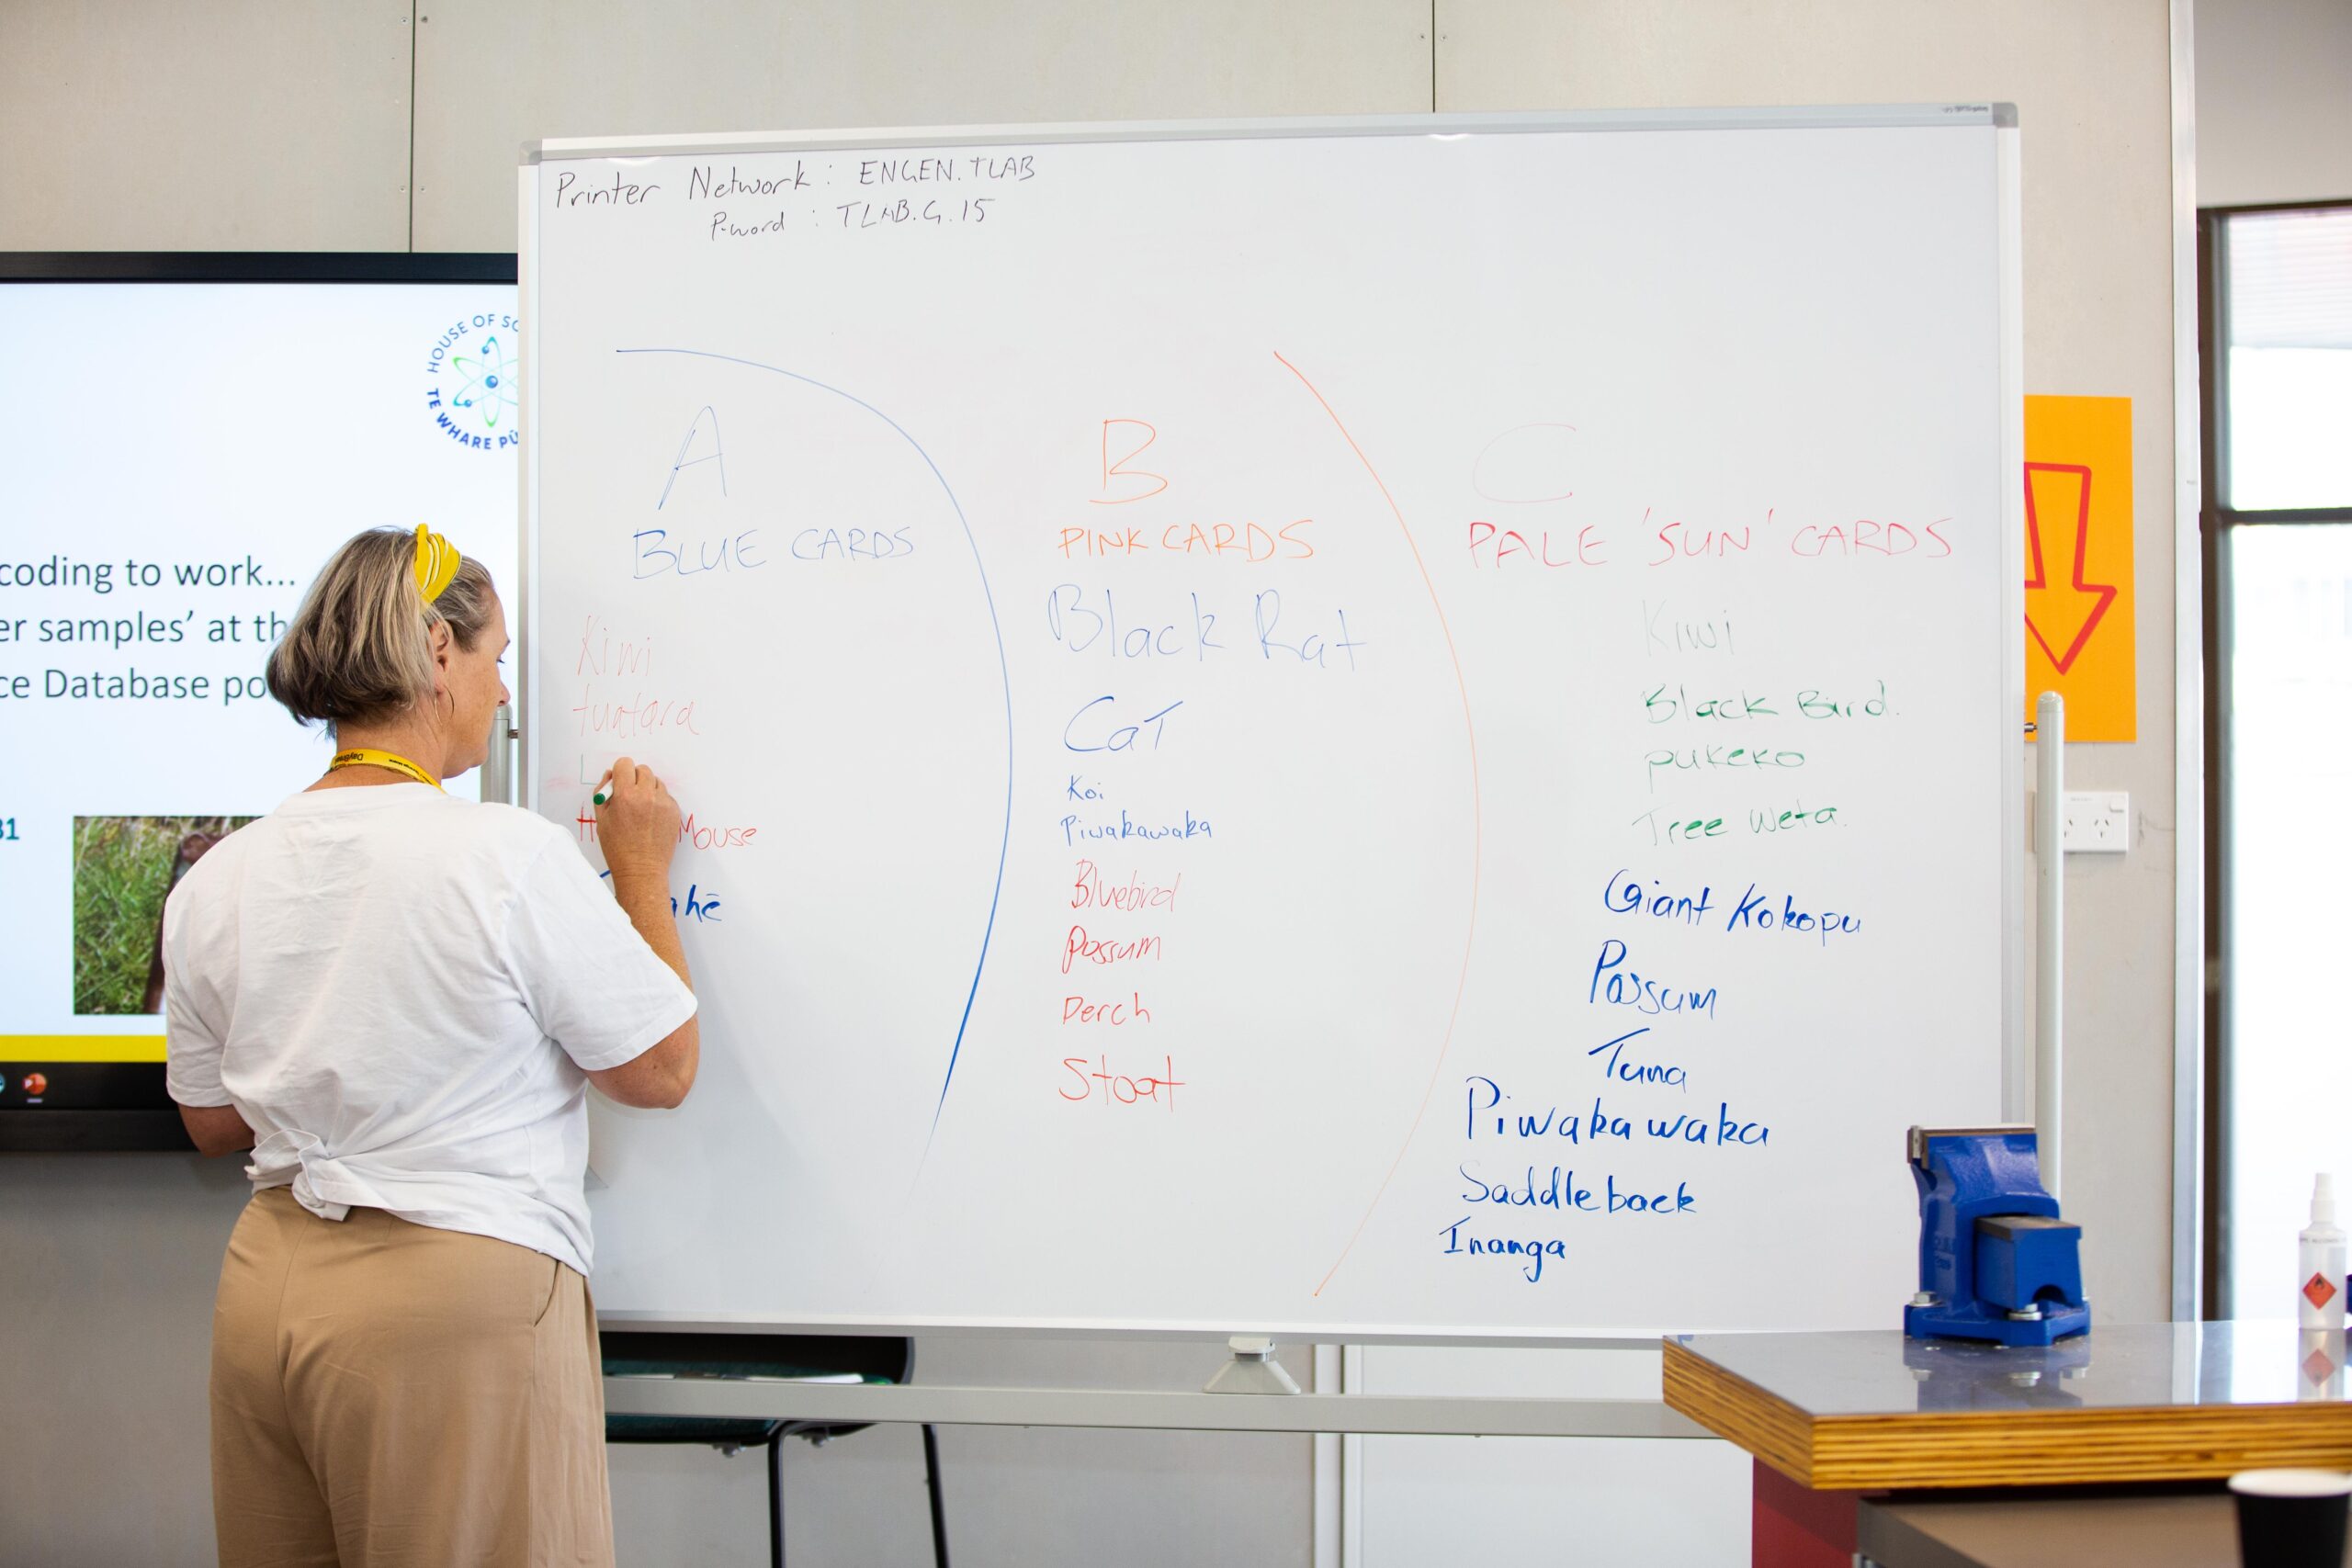 Printer Network : ENGEN.TLAB
P-word : TLAB.G.15
HOUSE OF
TE WHARE
coding to work...
er samples’ at th
ce Database po
31
A
BLUE CARDS
Kiwi
tuatara
L
Mouse
ahē
B
PINK CARDS
Black Rat
CaT
Koi
Piwakawaka
Bluebird
Possum
Perch
Stoat
C
PALE 'SUN' CARDS
Kiwi
Black Bird.
pukeko
Tree Weta.
Giant Kokopu
Possum
Tuna
Piwakawaka
Saddleback
Inanga